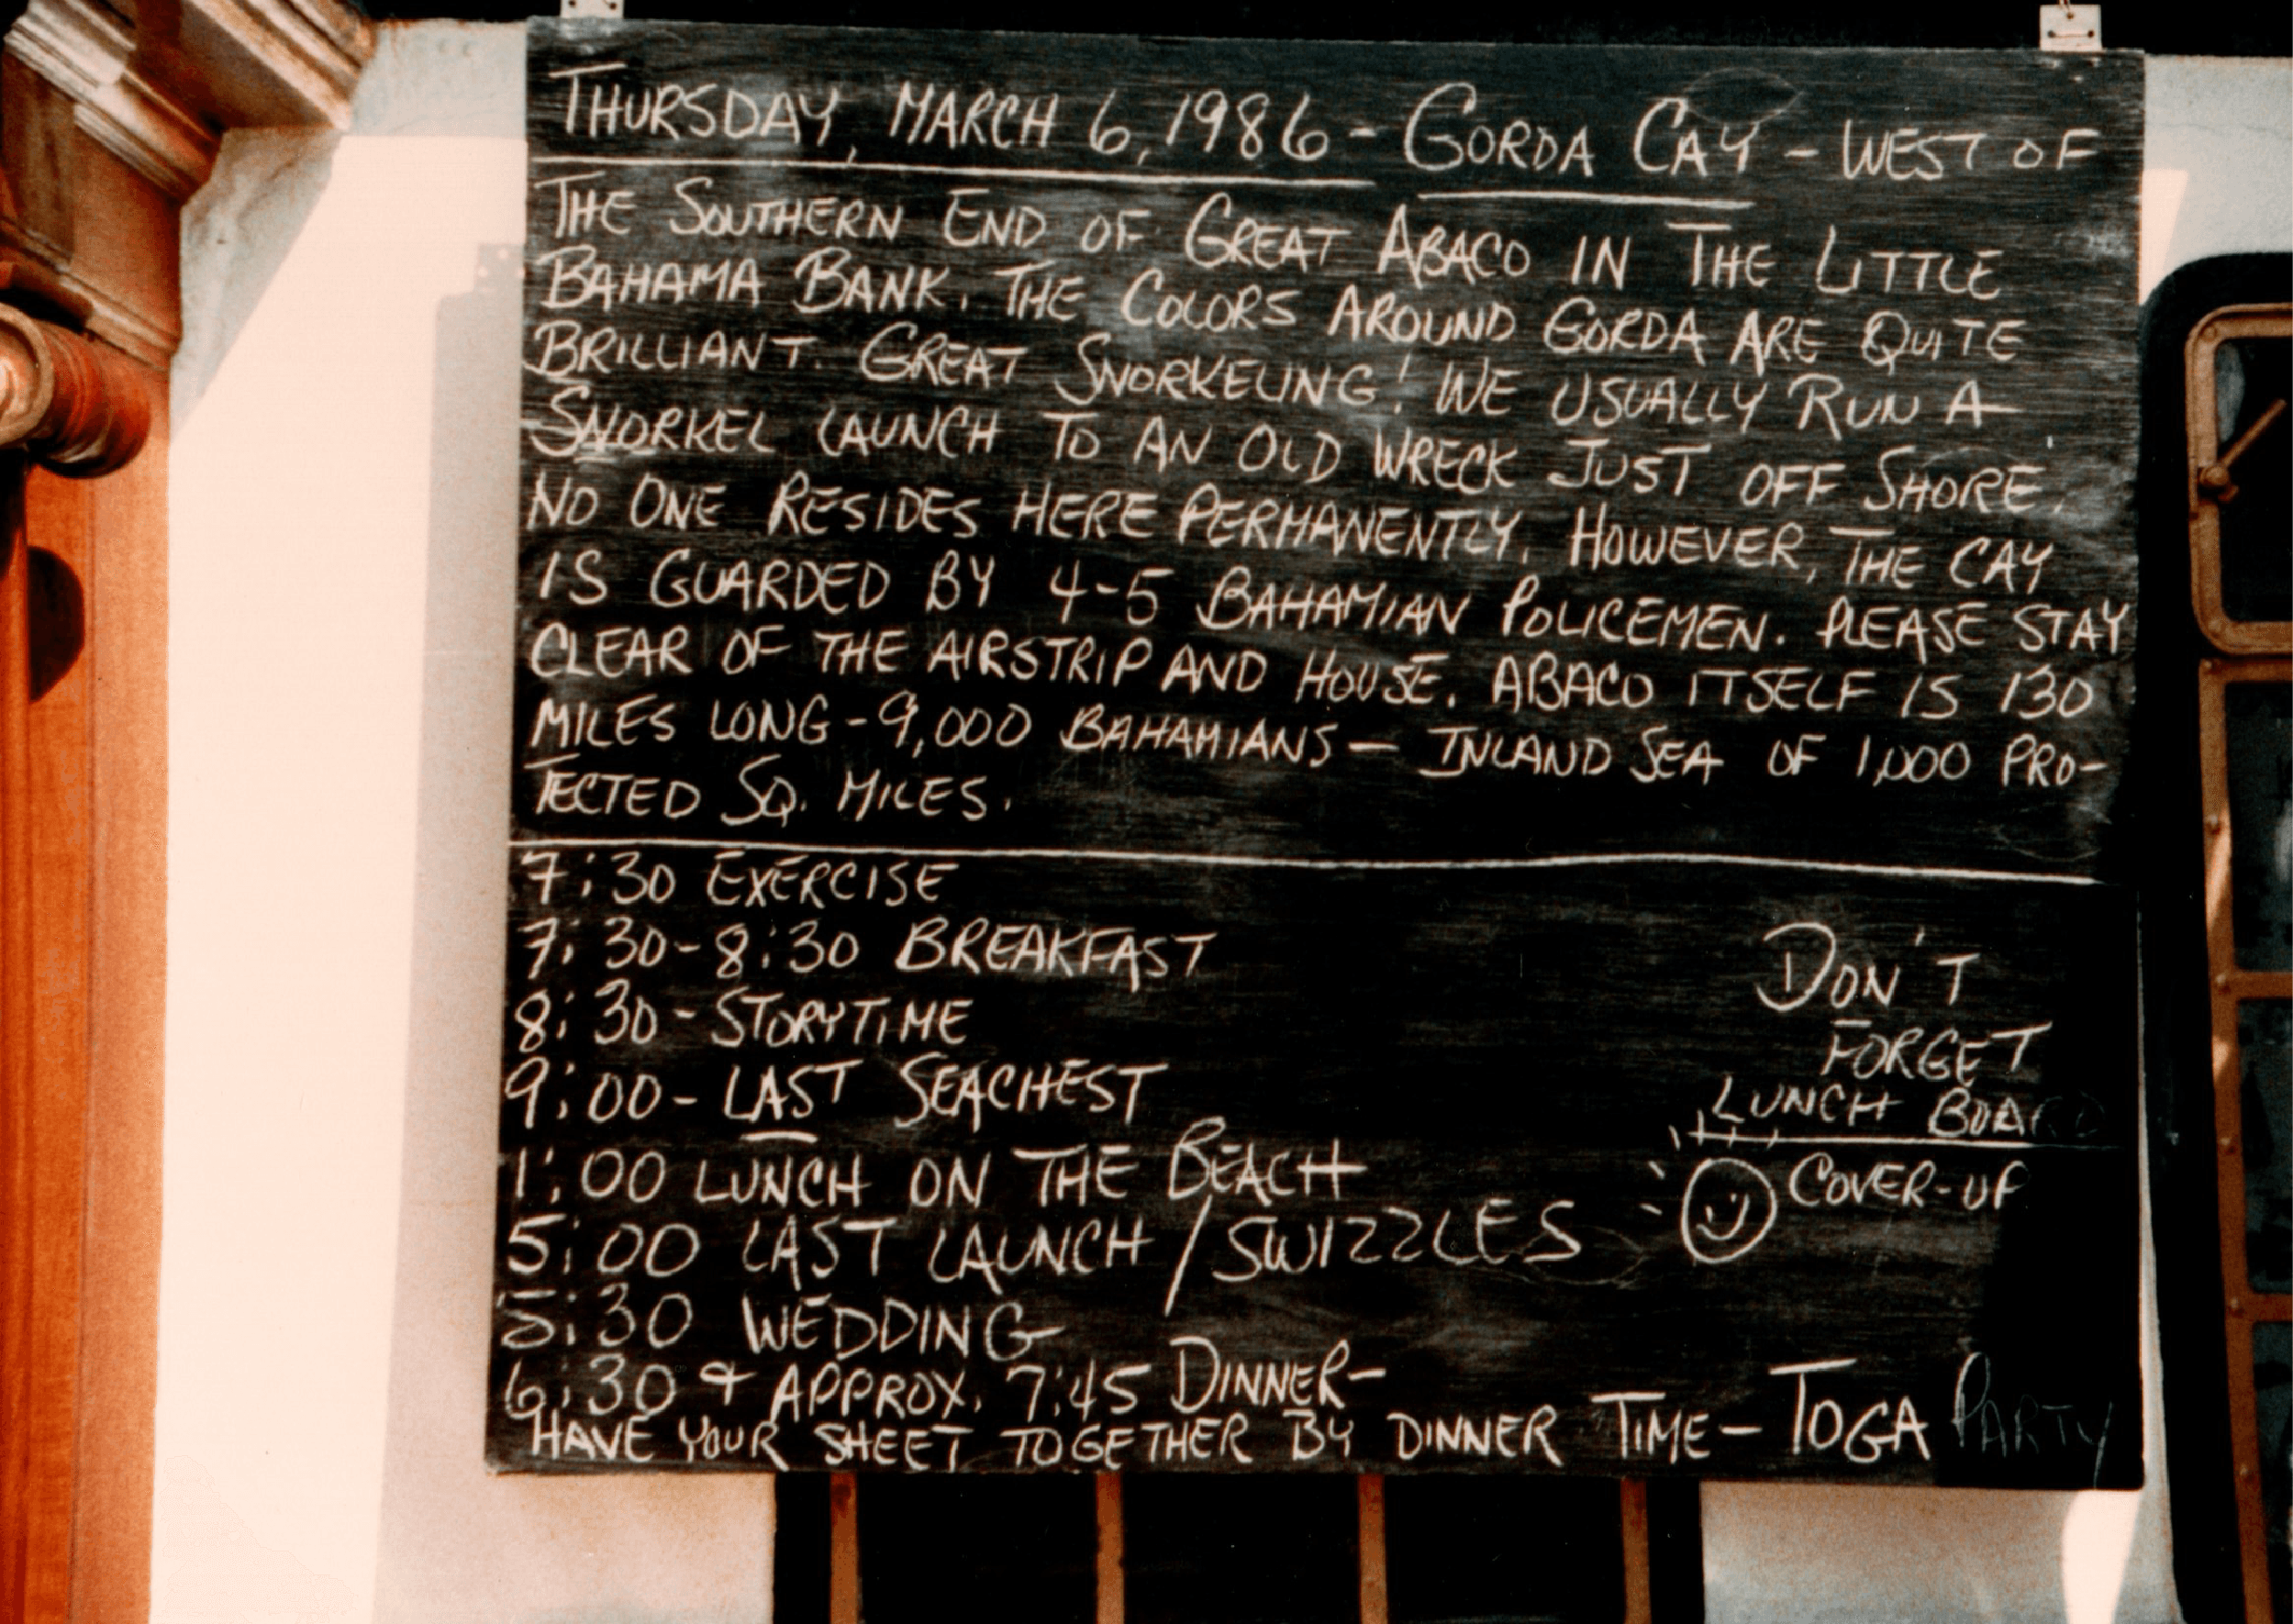 THURSDAY, MARCH 6, 1986 - GORDA CAY - WEST OF
THE SOUTHERN END OF GREAT ABACO IN THE LITTLE
BAHAMA BANK. THE COLORS AROUND GORDA ARE QUITE
BRILLIANT. GREAT SNORKELING! WE USUALLY RUN A
SNORKEL LAUNCH TO AN OLD WRECK JUST OFF SHORE.
NO ONE RESIDES HERE PERMANENTLY. HOWEVER, THE CAY
IS GUARDED BY 4-5 BAHAMIAN POLICEMEN. PLEASE STAY
CLEAR OF THE AIRSTRIP AND HOUSE. ABACO ITSELF IS 130
MILES LONG - 9,000 BAHAMIANS - INLAND SEA OF 1,000 PRO-
TECTED SQ. MILES.
7:30 EXERCISE
7:30-8:30 BREAKFAST
8:30 - STORYTIME
9:00 - LAST SEACHEST
1:00 LUNCH ON THE BEACH
5:00 LAST LAUNCH / SWIZZLES
5:30 WEDDING
6:30 & APPROX. 7:45 DINNER-
HAVE YOUR SHEET TOGETHER BY DINNER TIME - TOGA PARTY
DON'T
FORGET
LUNCH BOARD
COVER-UP